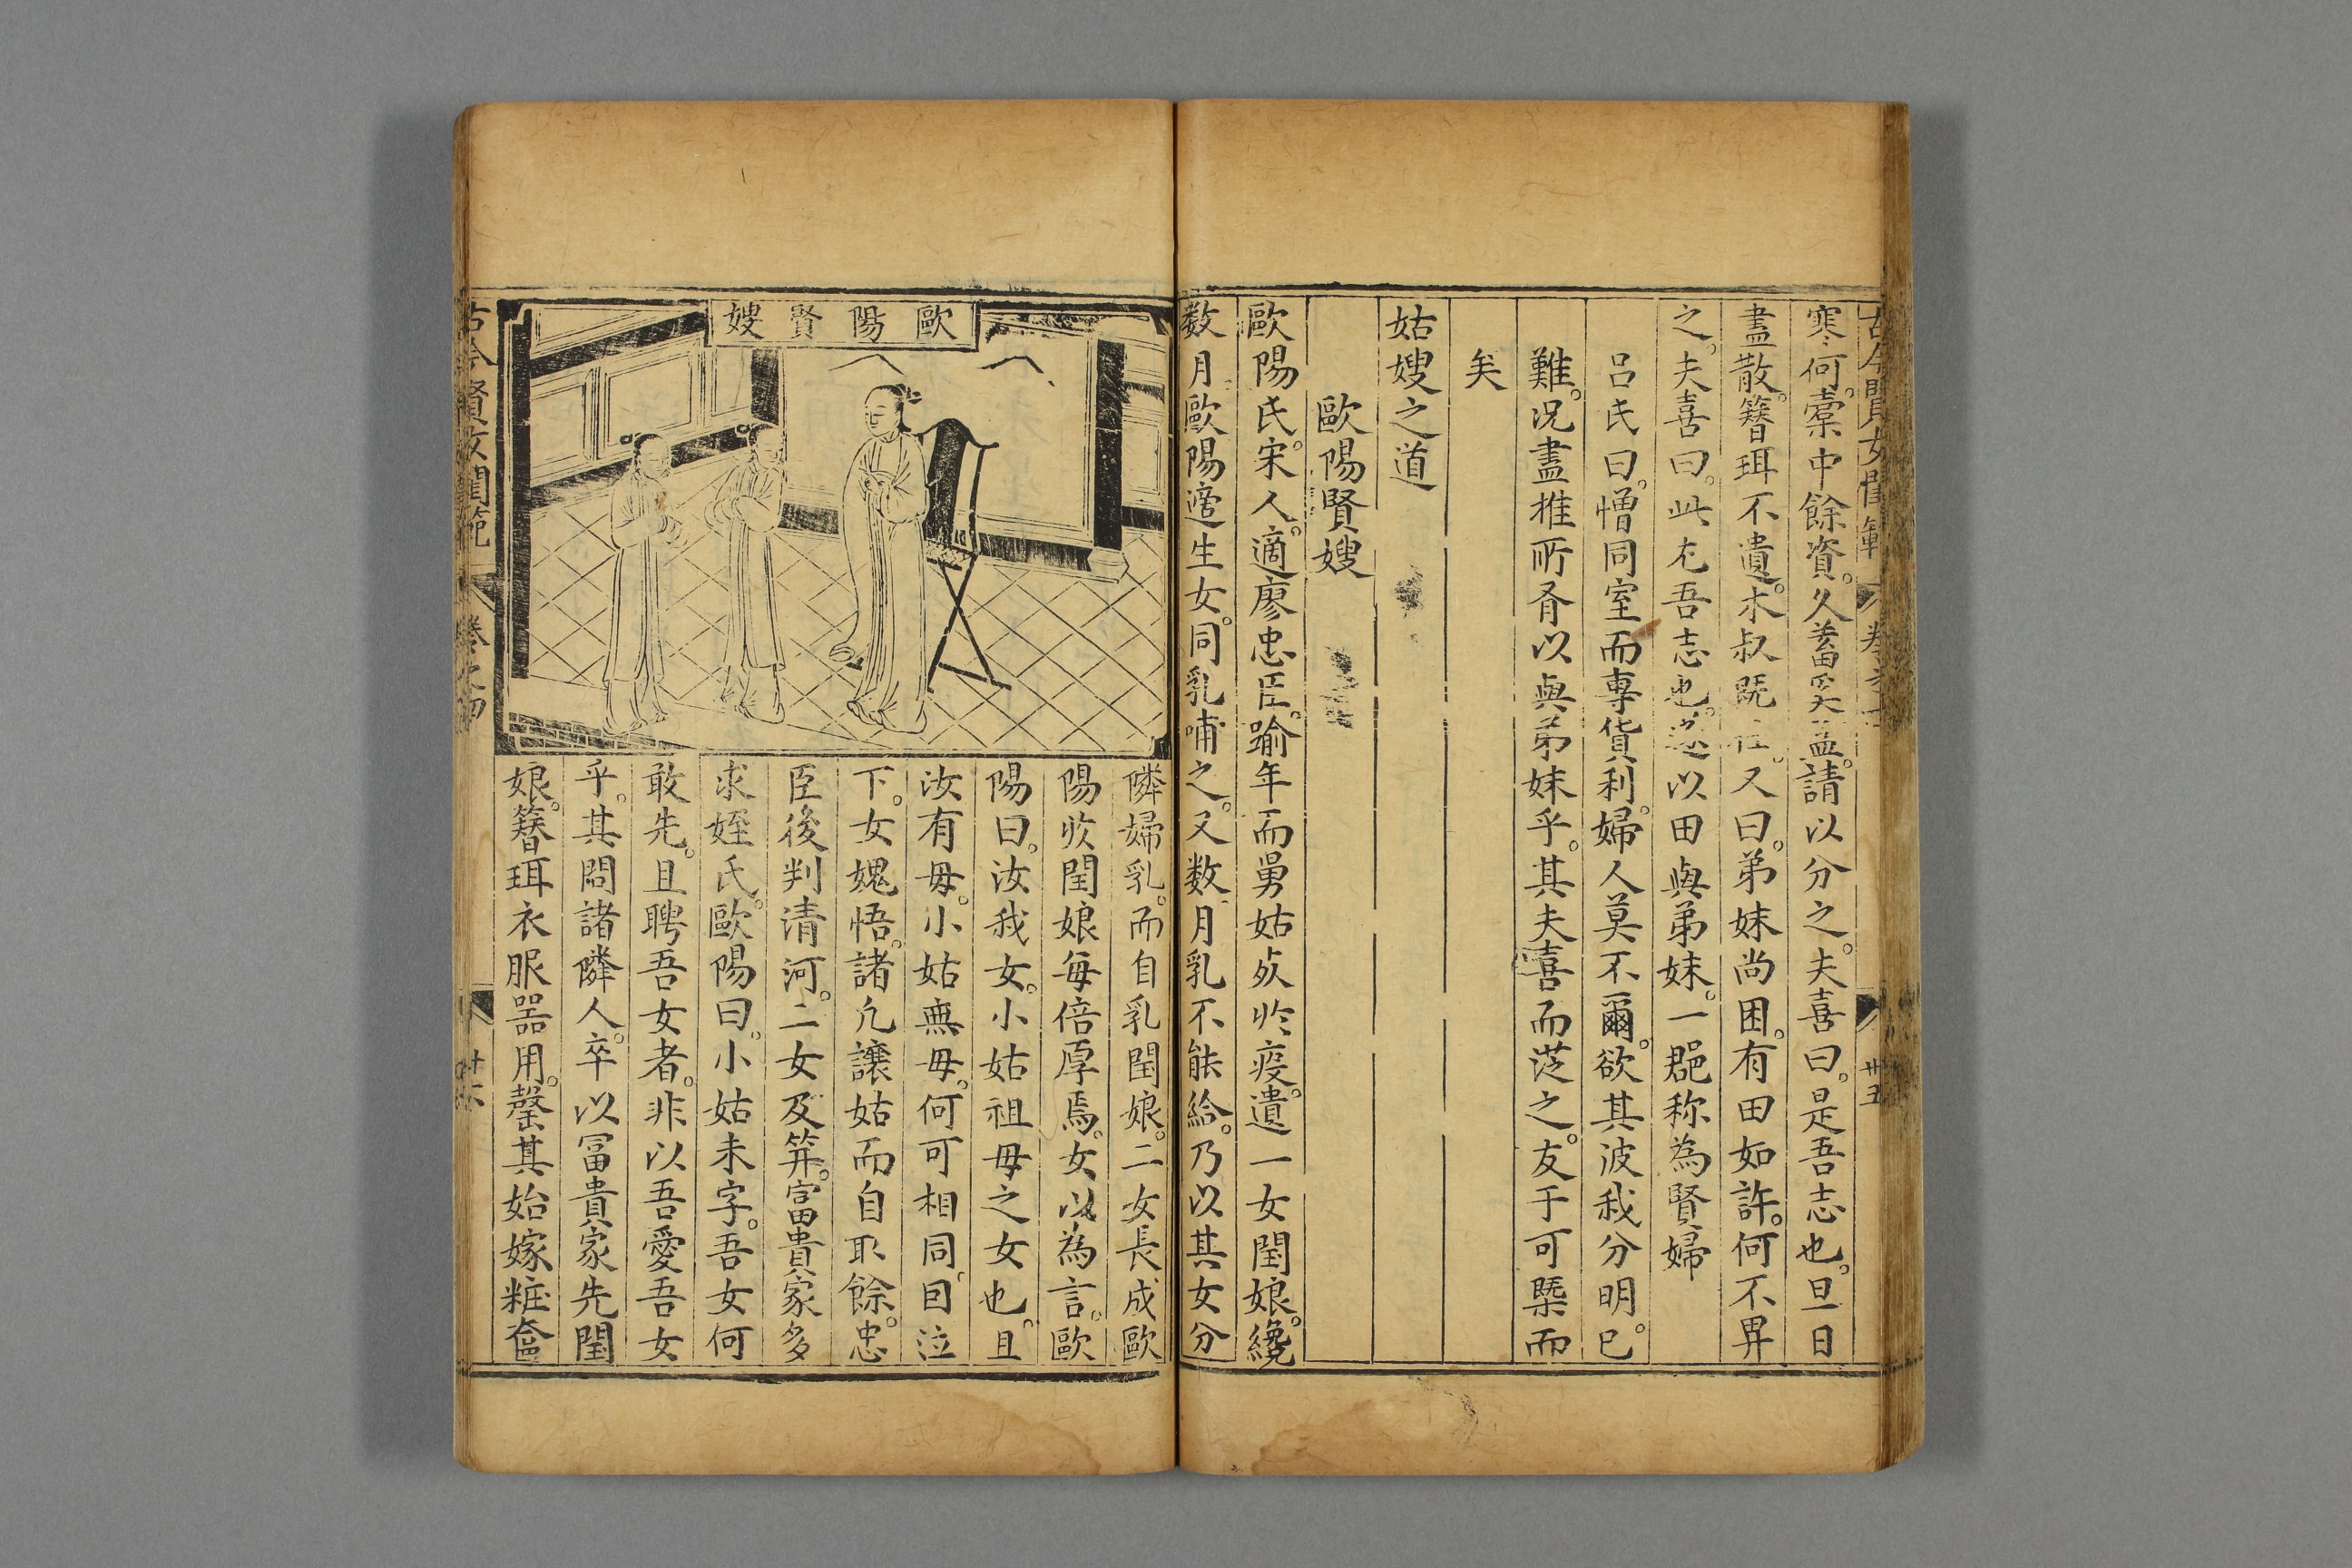 寒何槖中餘資久蓄奚益請以分之夫喜曰是吾志也旦日
盡散簪珥不遺木叔既往又曰弟妹尚困有田如許何不畀
之夫喜曰此尤吾志也遂以田與弟妹一郡称為賢婦
呂氏曰憎同室而專貨利婦人莫不爾欲其波我分明已
難况盡推所有以與弟妹乎其夫喜而従之友于可槩而
矣
姑嫂之道
歐陽賢嫂
歐陽氏宋人適廖忠臣踰年而舅姑殁於疫遺一女閏娘纔
数月歐陽適生女同乳哺之又数月乳不能給乃以其女分
歐陽賢嫂
隣婦乳而自乳閏娘二女長成歐
陽於閏娘每倍厚焉女以為言歐
陽曰汝我女小姑祖母之女也且
汝有母小姑無母何可相同因泣
下女媿悟諸凢讓姑而自取餘忠
臣後判清河二女及笄富貴家多
求姪氏歐陽曰小姑未字吾女何
敢先且聘吾女者非以吾愛吾女
乎其問諸隣人卒以冨貴家先閏
娘簪珥衣服噐用罄其始嫁粧奩
古今賢女閨範